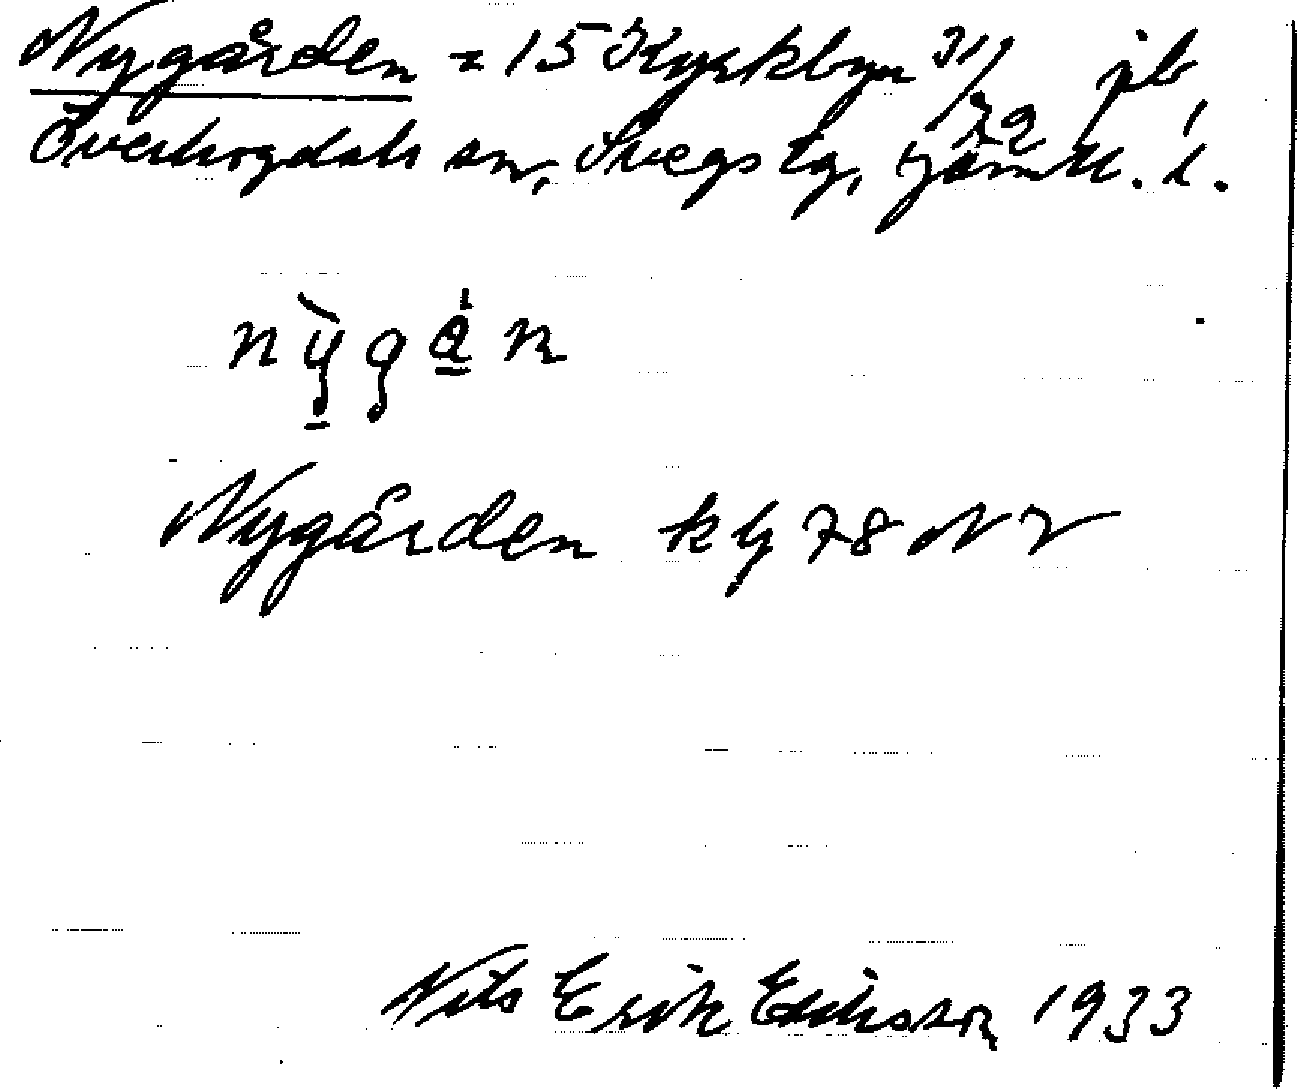 Nygården = 15 Kyrkbyn 31/72 jb
Överhogdals sn, Svegs tg, Jämtl. l.
nỳgån
Nygården kbl 78 NV
Nils Erik Eriksson 1933